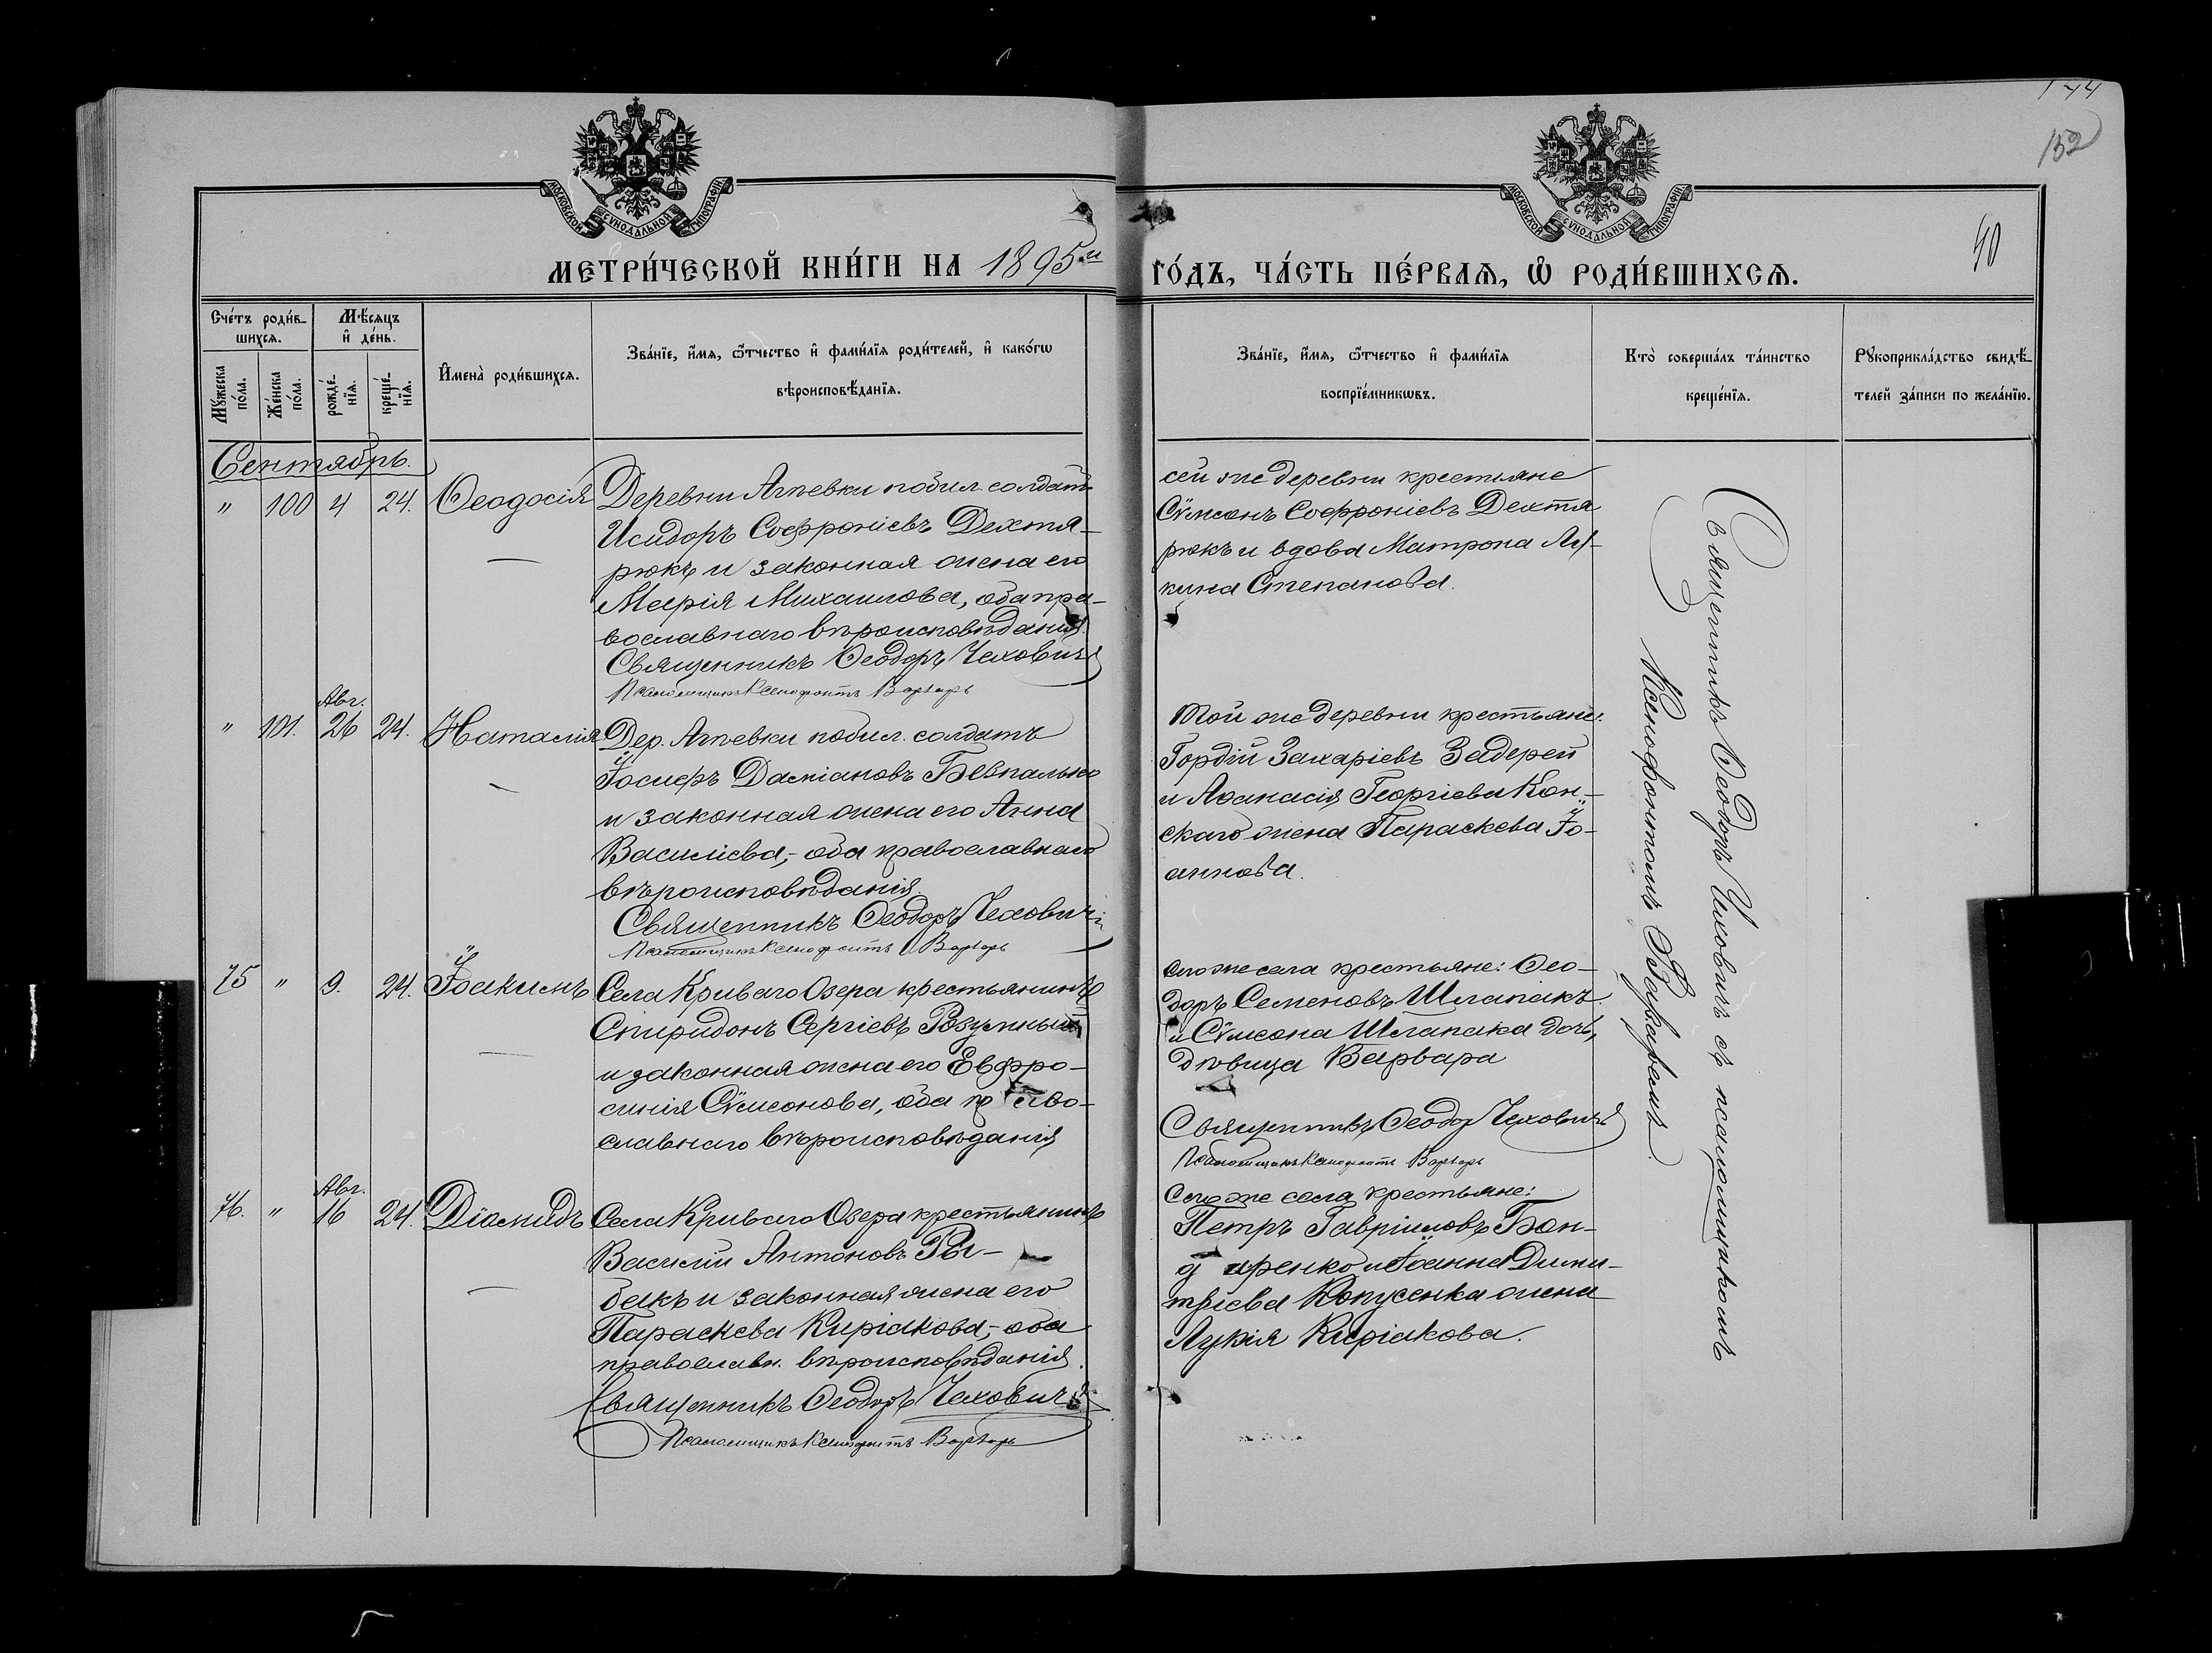 МОСКОВСКОЙ СѴНОДАЛЬНОЙ ТИПОГРАФІИ
МОСКОВСКОЙ СѴНОДАЛЬНОЙ ТИПОГРАФІИ
144
132
40
МЕТРИ́ЧЕСКОЙ КНИ́ГИ НА 1895й ГО́ДЪ, ЧА́СТЬ ПЕ́РВАѦ, Ѽ РОДИ́ВШИХСѦ.
Сче́тъ роди́в-
шихсѧ.
Мѣ́сѧцъ
и҆ де́нь.
Мꙋ́жеска по́ла.
Же́нска по́ла.
рожде́-нїѧ.
креще́-нїѧ.
И҆мена̀ роди́вшихсѧ.
Зва́нїе, и҆́мѧ, ѻ҆́тчество и҆ фами́лїѧ роди́телей, и҆ како́гѡ
вѣроисповѣ́данїѧ.
Зва́нїе, и҆́мѧ, ѻ҆́тчество и҆ фами́лїѧ
воспрїе́мникѡвъ.
Кто̀ соверша́лъ та́инство
креще́нїѧ.
Рꙋкоприкла́дство свидѣ́-
телей за́писи по жела́нїю.
Сентябрь.
" 100 4 24. Ѳеодосія
Деревни Агѣевки побил. солдатъ
Исидоръ Софроніевъ Дехтя-
рюкъ и законная жена его
Марія Михаилова, оба пра-
вославнаго вѣроисповѣданія.
Священникъ Ѳеодоръ Чеховичъ
Псаломщикъ Ксенофонтъ Варварь
сей же деревни крестьяне
Сѵмеонъ Софроніевъ Дехтя
рюкъ и вдова Матрона Лу-
кина Степанова.
" 101. Авг. 26 24. Наталія
Дер. Агѣевки побил. солдатъ
Іосифъ Даміановъ Безпалько
и законная жена его Анна
Василіева,- оба православнаго
вѣроисповѣданія.
Священникъ Ѳеодоръ Чеховичъ
Псаломщикъ Ксенофонтъ Варварь
Той же деревни крестьяне:
Гордій Захаріевъ Задерей
и Аѳанасія Георгіева Кон-
скаго жена Параскева Іо-
аннова.
75 " 9. 24. Іоакимъ
Села Криваго Озера крестьянинъ
Спиридонъ Сергіевъ Розумный
и законная жена его Евфро-
синія Сѵмеонова, оба право-
славнаго вѣроисповѣданія
Сего же села крестьяне: Ѳео-
доръ Семеновъ Шлапакъ
и Сѵмеона Шлапака дочь,
дѣвица Варвара
Священникъ Ѳеодоръ Чеховичъ
Псаломщикъ Ксенофонтъ Варварь
76. " Авг. 16 24. Діомидъ
Села Криваго Озера крестьянинъ
Василій Антоновъ Ры-
бакъ и законная жена его
Параскева Киріакова,- оба
православн. вѣроисповѣданія.
Священникъ Ѳеодоръ Чеховичъ
Псаломщикъ Ксенофонтъ Варварь
Сего же села крестьяне:
Петръ Гавріиловъ Бон-
даренко и Іоанна Дими-
тріева Копусенка жена
Лукія Киріакова.
Священникъ Ѳеодоръ Чеховичъ съ псаломщикомъ
Ксенофонтомъ Варваремъ.